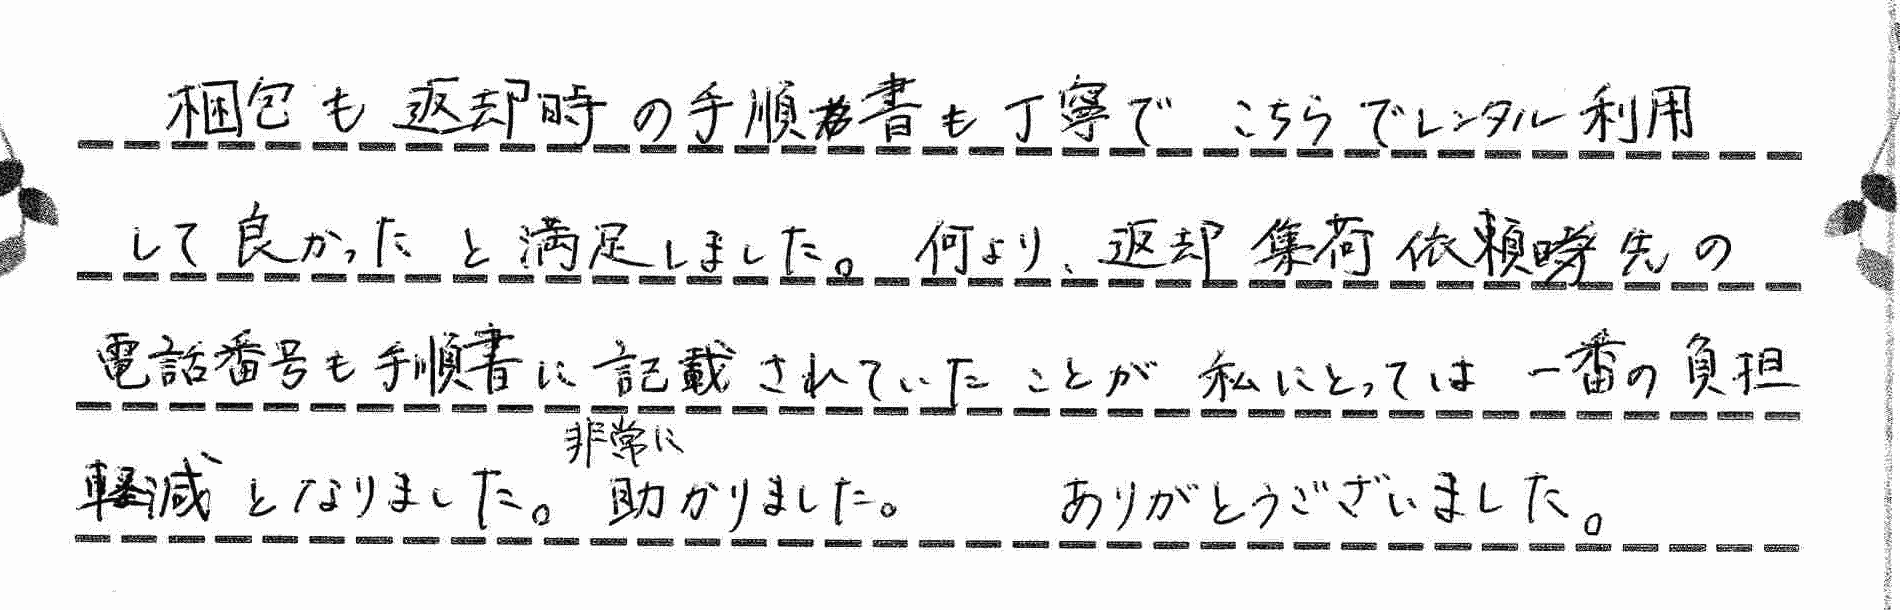 梱包も返却時の手順書も丁寧で こちらでレンタル利用
して良かったと満足しました。何より、返却 集荷 依頼先の
電話番号も手順書に記載されていたことが 私にとっては 一番の負担
非常に
軽減となりました。 助かりました。 ありがとうございました。